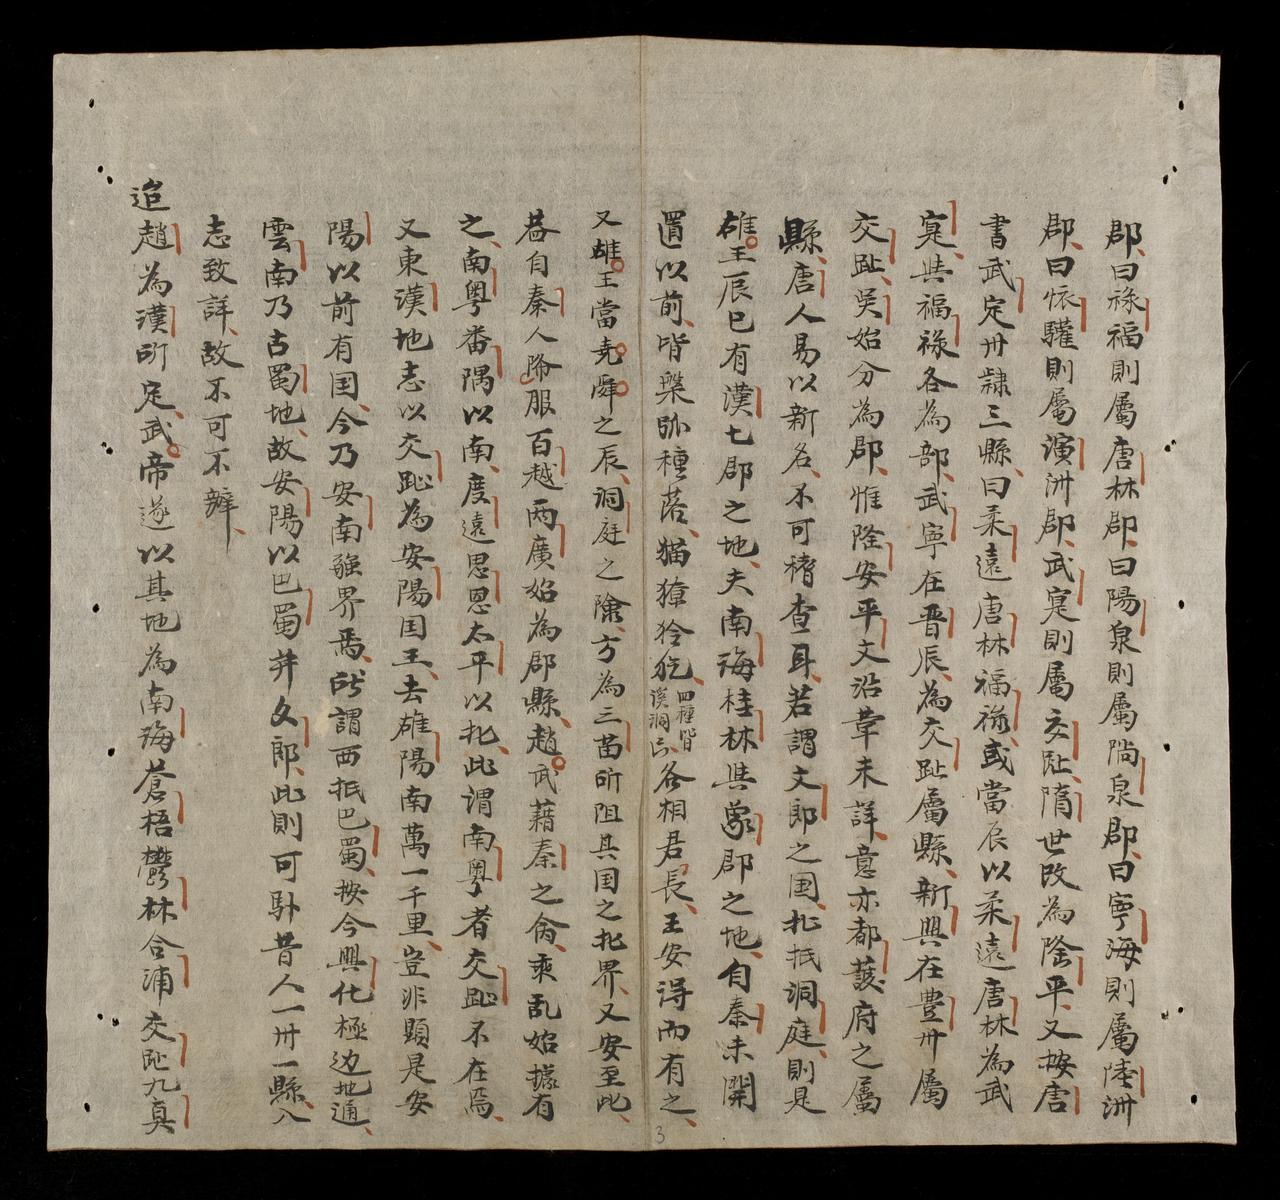 郡曰祿福則屬唐林郡曰陽泉則屬陽泉郡曰寧海則屬陸洲
郡曰懷驩則屬演洲郡武寔則屬交趾隋世改為隆平又按唐
書武定卅隸三縣曰柔遠唐林福祿或當辰以柔遠唐林為武
寔其福祿各為部武寧在晋辰為交趾屬縣新興在豊卅屬
交趾吳始分為郡惟隆安平文沿革未詳意亦都護府之屬
縣唐人易以新名不可稽查耳若謂文郎之国北抵洞庭則是
雄王辰已有漢七郡之地夫南海桂林與象郡之地自秦未開
置以前皆槃瓠種落猫獞狑犵四種皆溪洞名各相君長王安得而有之
又雄王當堯舜之辰洞庭之險方為三苗所阻其国之北界又安至此
昔自秦人降服百越兩廣始為郡縣趙武藉秦之僞乘乱始據有
之南粤番隅以南度遠思恩太平以北此謂南粤者交趾不在焉
又東漢地志以交趾為安陽国王去雄陽南萬一千里豈非顕是安
陽以前有国今乃安南強界焉所謂西抵巴蜀按今興化極边地通
雲南乃古蜀地故安陽以巴蜀并文郎此則可卧昔人一卅一縣入
志致詳故不可不辨
迨趙為漢所定武帝遂以其地為南海蒼梧鬱林合浦交趾九真
3